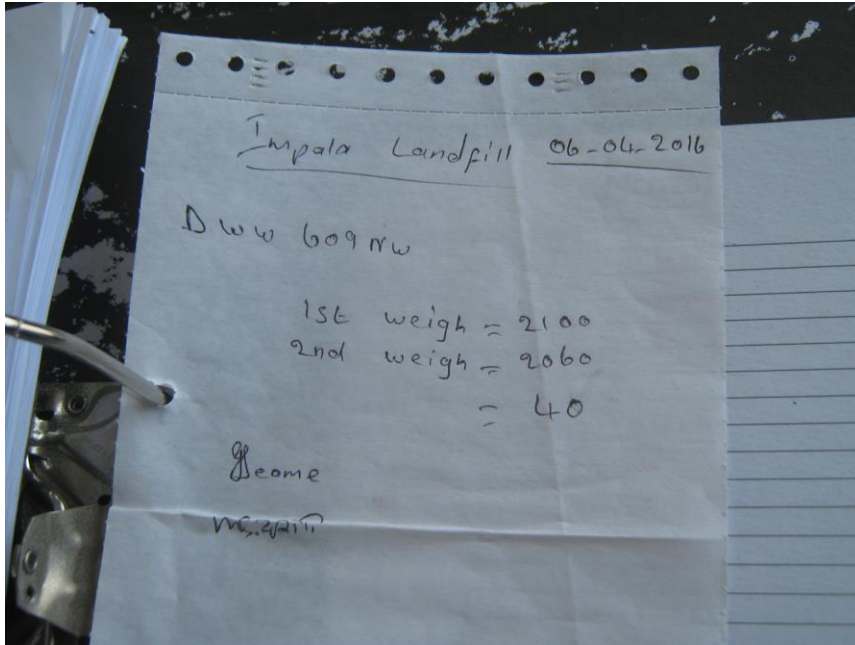 Impala Landfill 06-04-2016
DWW 609 NW
1st weigh = 2100
2nd weigh = 2060
= 40